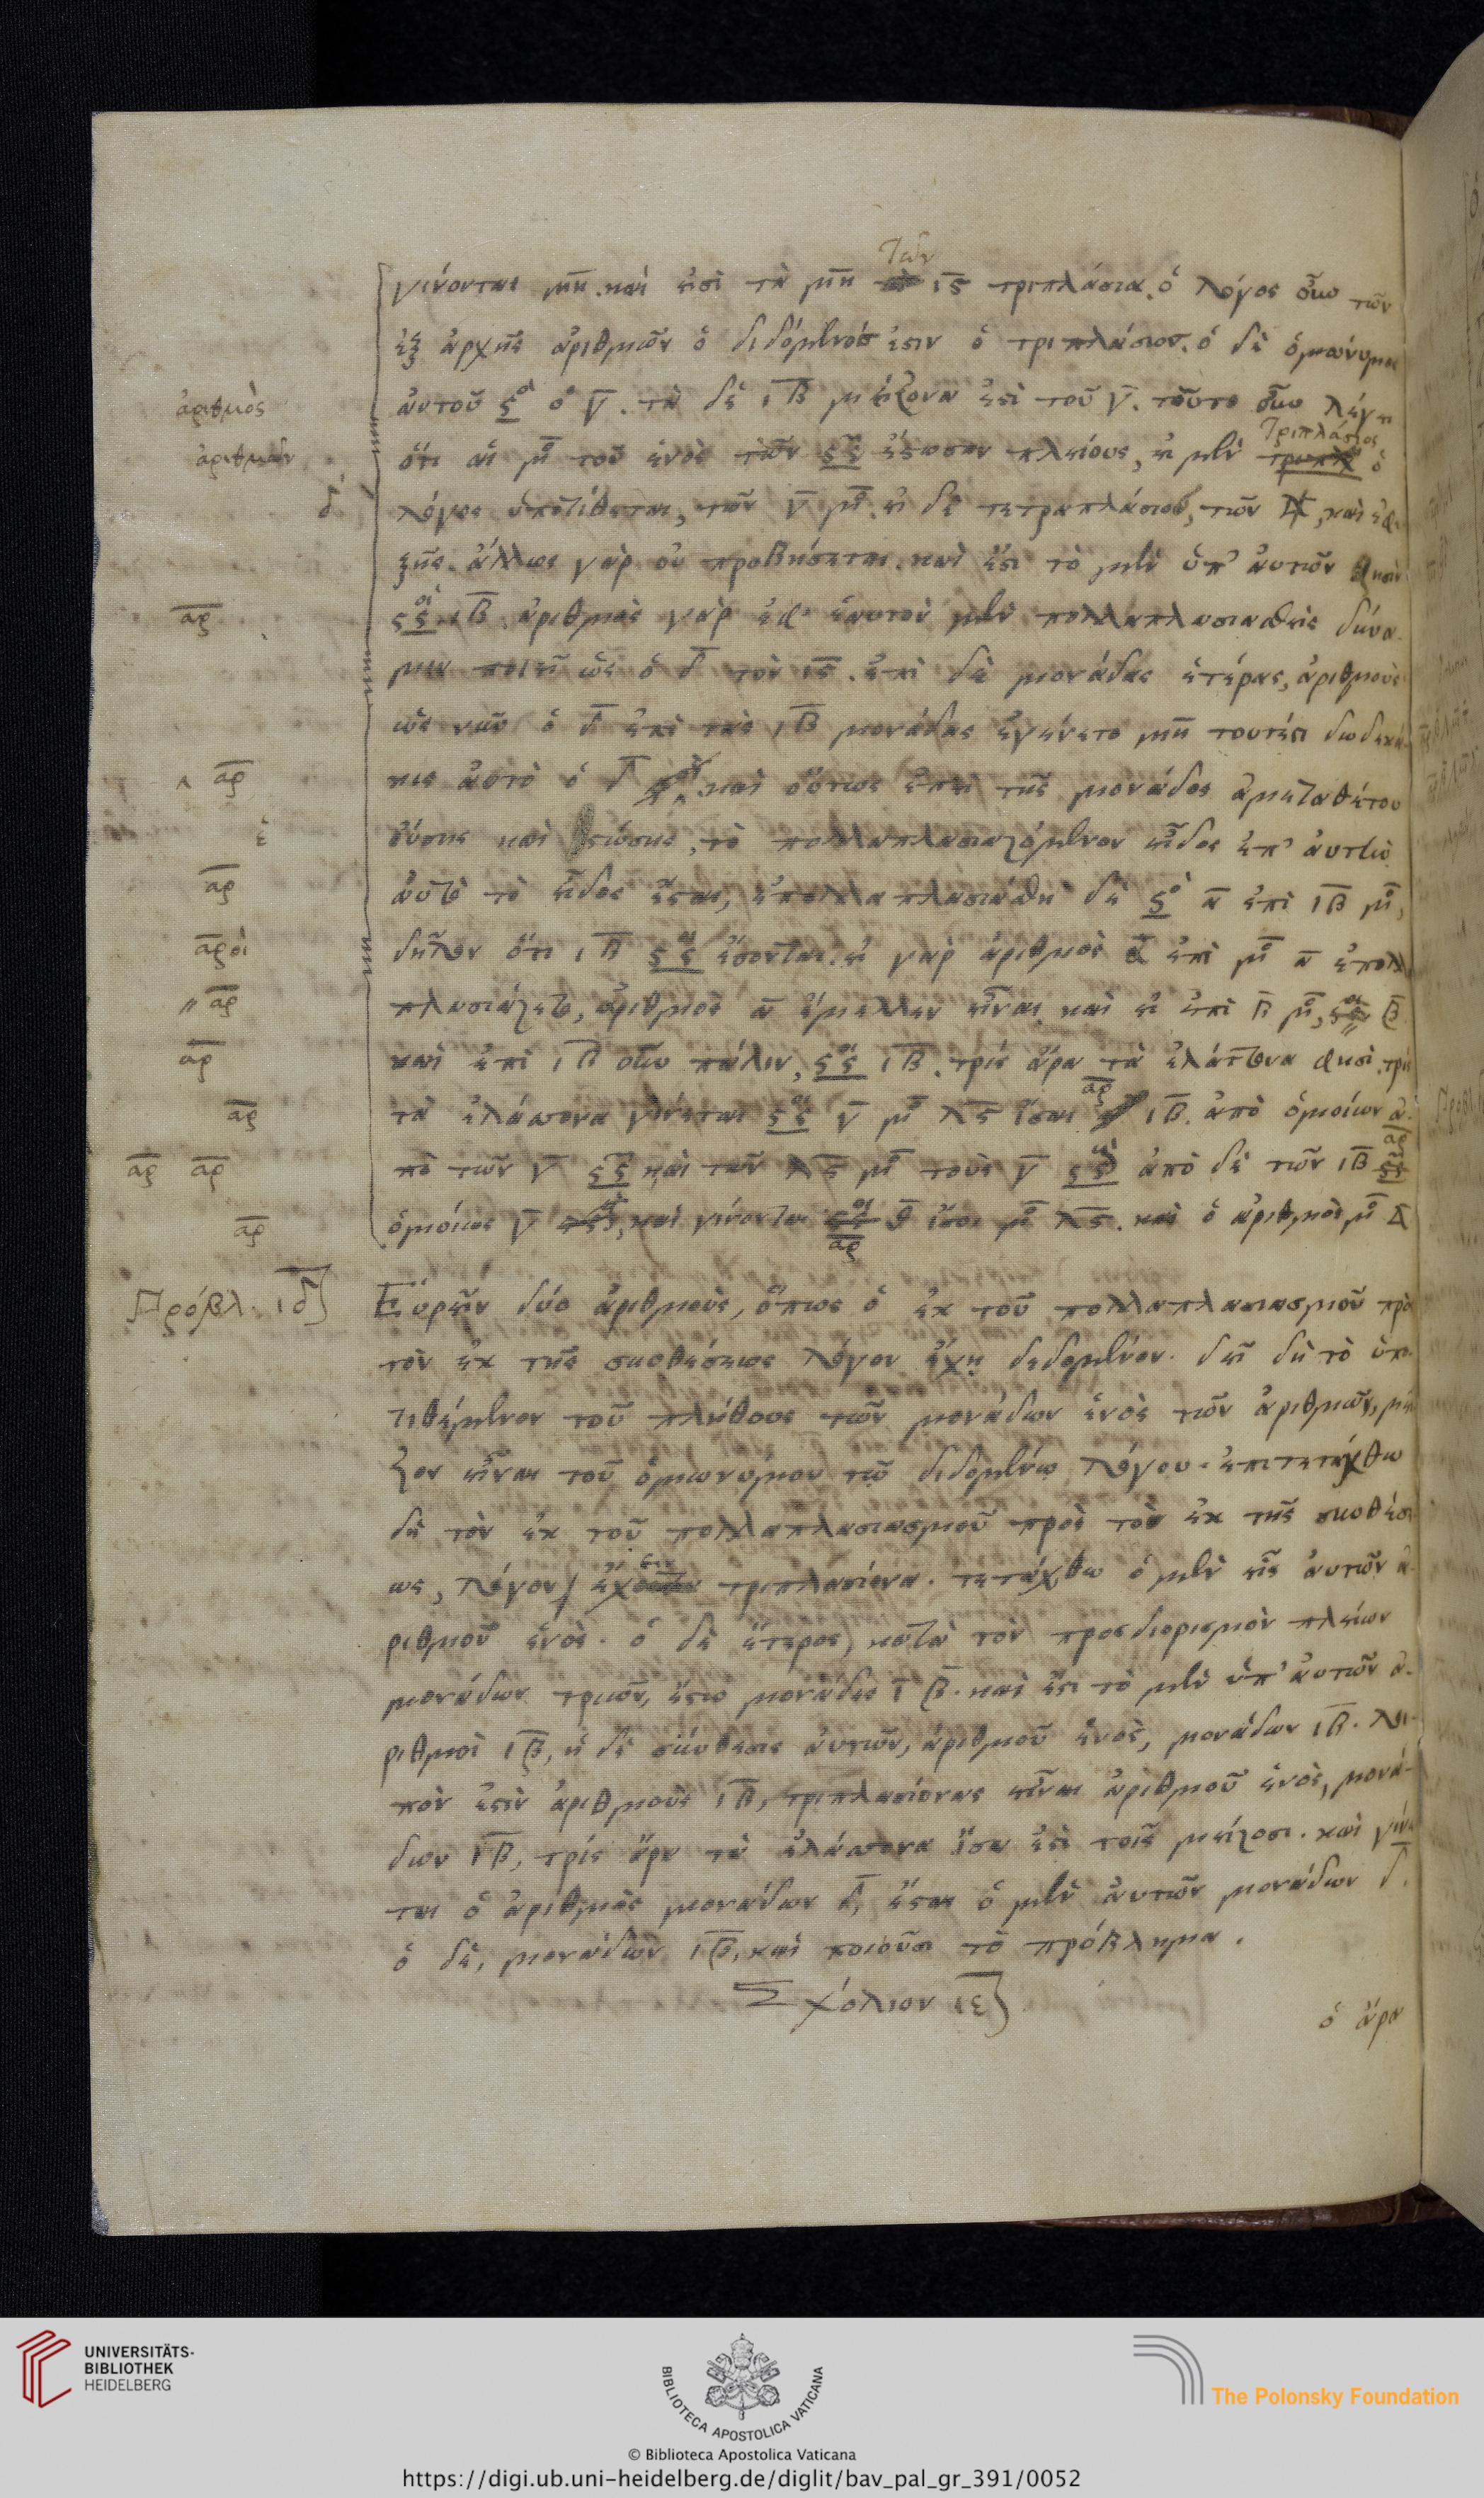 τῶν
γίνονται μη. καί εἰσι τὰ μη ις τριπλάσια. ὁ λόγος οὖν τῶν
ἐξ ἀρχῆς ἀριθμῶν ὁ διδόμενός ἐστιν ὁ τριπλάσιος. ὁ δὲ ὁμώνυμος
ἀριθμὸς
αὐτοῦ ςὸς ὁ γ. τὰ δὲ ιβ μείζονα ἐστὶ τοῦ γ. τοῦτο οὖν λέγει
τριπλάσιος
ἀριθμῶν
ὅτι αἱ μο τοῦ ἑνὸς τῶν ςς ἔστωσαν πλείους, εἰ μὲν ὁ
δ
λόγος ὑποτίθεται, τῶν γ μο. εἰ δὲ τετραπλάσιος, τῶν δ, καὶ ἐφε-
ξῆς. ἄλλως γὰρ οὐ προβήσεται. καὶ ἔστι τὸ μὲν ὑπ' αὐτῶν φησὶν
αρ
ςςοὶ ιβ. ἀριθμὸς γὰρ ἐφ' ἑαυτὸν μὲν πολλαπλασιασθεὶς δύνα-
μιν ποιεῖ ὡς ὁ δ τὸν ις. ἐπὶ δὲ μονάδας ἑτέρας, ἀριθμοὺς
ὡς νῦν ὁ δ ἐπὶ τὰς ιβ μονάδας ἐγένετο μη τουτέστι δωδεκά-
αρ
κις αὐτὸ ὁ δ καὶ οὕτως ἐπεὶ τῆς μονάδος ἀμεταθέτου
ἑ
οὔσης καὶ ἑστώσης, τὸ πολλαπλασιαζόμενον εἶδος ἐπ' αὐτὴν
αρ
αὐτὸ τὸ εἶδος ἔσται, ἐπολλαπλασιάσθη δὲ ςὸς α ἐπὶ ιβ μο,
αροὶ
δῆλον ὅτι ιβ ςςοὶ ἔσονται. εἰ γὰρ ἀριθμὸς α ἐπὶ μο α ἐπολλα
αρ
πλασιάζετο, ἀριθμὸς α ἔμελλεν εἶναι, καὶ εἰ ἐπὶ β μο, ςςοὶ β
αρ
καὶ ἐπὶ ιβ οὖν πάλιν, ςςοὶ ιβ. τρὶς ἄρα τὰ ἐλάττονα φησὶ, τρὶς
αρ
αρ
τὰ ἐλάττονα γίνεται ςςοὶ γ μο λς ἴσαι ιβ. ἀπὸ ὁμοίων ἀ-
αρ αρ
αρ
πὸ τῶν γ ςς καὶ τῶν λς μο τοὺς γ ςς ἀπὸ δὲ τῶν ιβ ςς
αρ
ὁμοίως γ ςς, καὶ γίνονται ςςοὶ θ ἴσοι μο λς. καὶ ὁ ἀριθμὸς μο δ
αρ
Πρόβλ. ιδ]
Εὑρεῖν δύο ἀριθμοὺς, ὅπως ὁ ἐκ τοῦ πολλαπλασιασμοῦ πρὸς
τὸν ἐκ τῆς συνθέσεως λόγον ἔχῃ δεδομένον. δεῖ δὴ τὸ ὑπο-
τιθέμενον τοῦ πλήθους τῶν μονάδων ἑνὸς τῶν ἀριθμῶν, μεῖ-
ζον εἶναι τοῦ ὁμωνύμου τῷ διδομένῳ λόγου. ἐπιτετάχθω
δὴ τὸν ἐκ τοῦ πολλαπλασιασμοῦ πρὸς τὸν ἐκ τῆς συνθέσε-
ως, λόγον ἔχειν τριπλασίονα. τετάχθω ὁ μὲν εἷς αὐτῶν ἀ-
ριθμοῦ ἑνὸς. ὁ δὲ ἕτερος, κατὰ τὸν προσδιορισμὸν πλείων
μονάδων τριῶν, ἔστω μονάδες ιβ. καὶ ἔστι τὸ μὲν ὑπ' αὐτῶν ἀ-
ριθμοὶ ιβ, ἡ δὲ σύνθεσις αὐτῶν, ἀριθμοῦ ἑνὸς, μονάδων ιβ. λοι-
πὸν ἐστὶν ἀριθμοὺς ιβ, τριπλασίονας εἶναι ἀριθμοῦ ἑνὸς, μονά-
δων ιβ, τρὶς ἄρα τὰ ἐλάττονα ἴσα ἐστὶ τοῖς μείζοσι. καὶ γίνε-
ται ὁ ἀριθμὸς μονάδων δ, ἔσται ὁ μὲν αὐτῶν μονάδων δ.
ὁ δὲ, μονάδων ιβ, καὶ ποιοῦσι τὸ πρόβλημα.
Σχόλιον ιε]
ὁ ἄρα
UNIVERSITÄTS-
BIBLIOTHEK
HEIDELBERG
BIBLIOTECA APOSTOLICA VATICANA
The Polonsky Foundation
© Biblioteca Apostolica Vaticana
https://digi.ub.uni-heidelberg.de/diglit/bav_pal_gr_391/0052